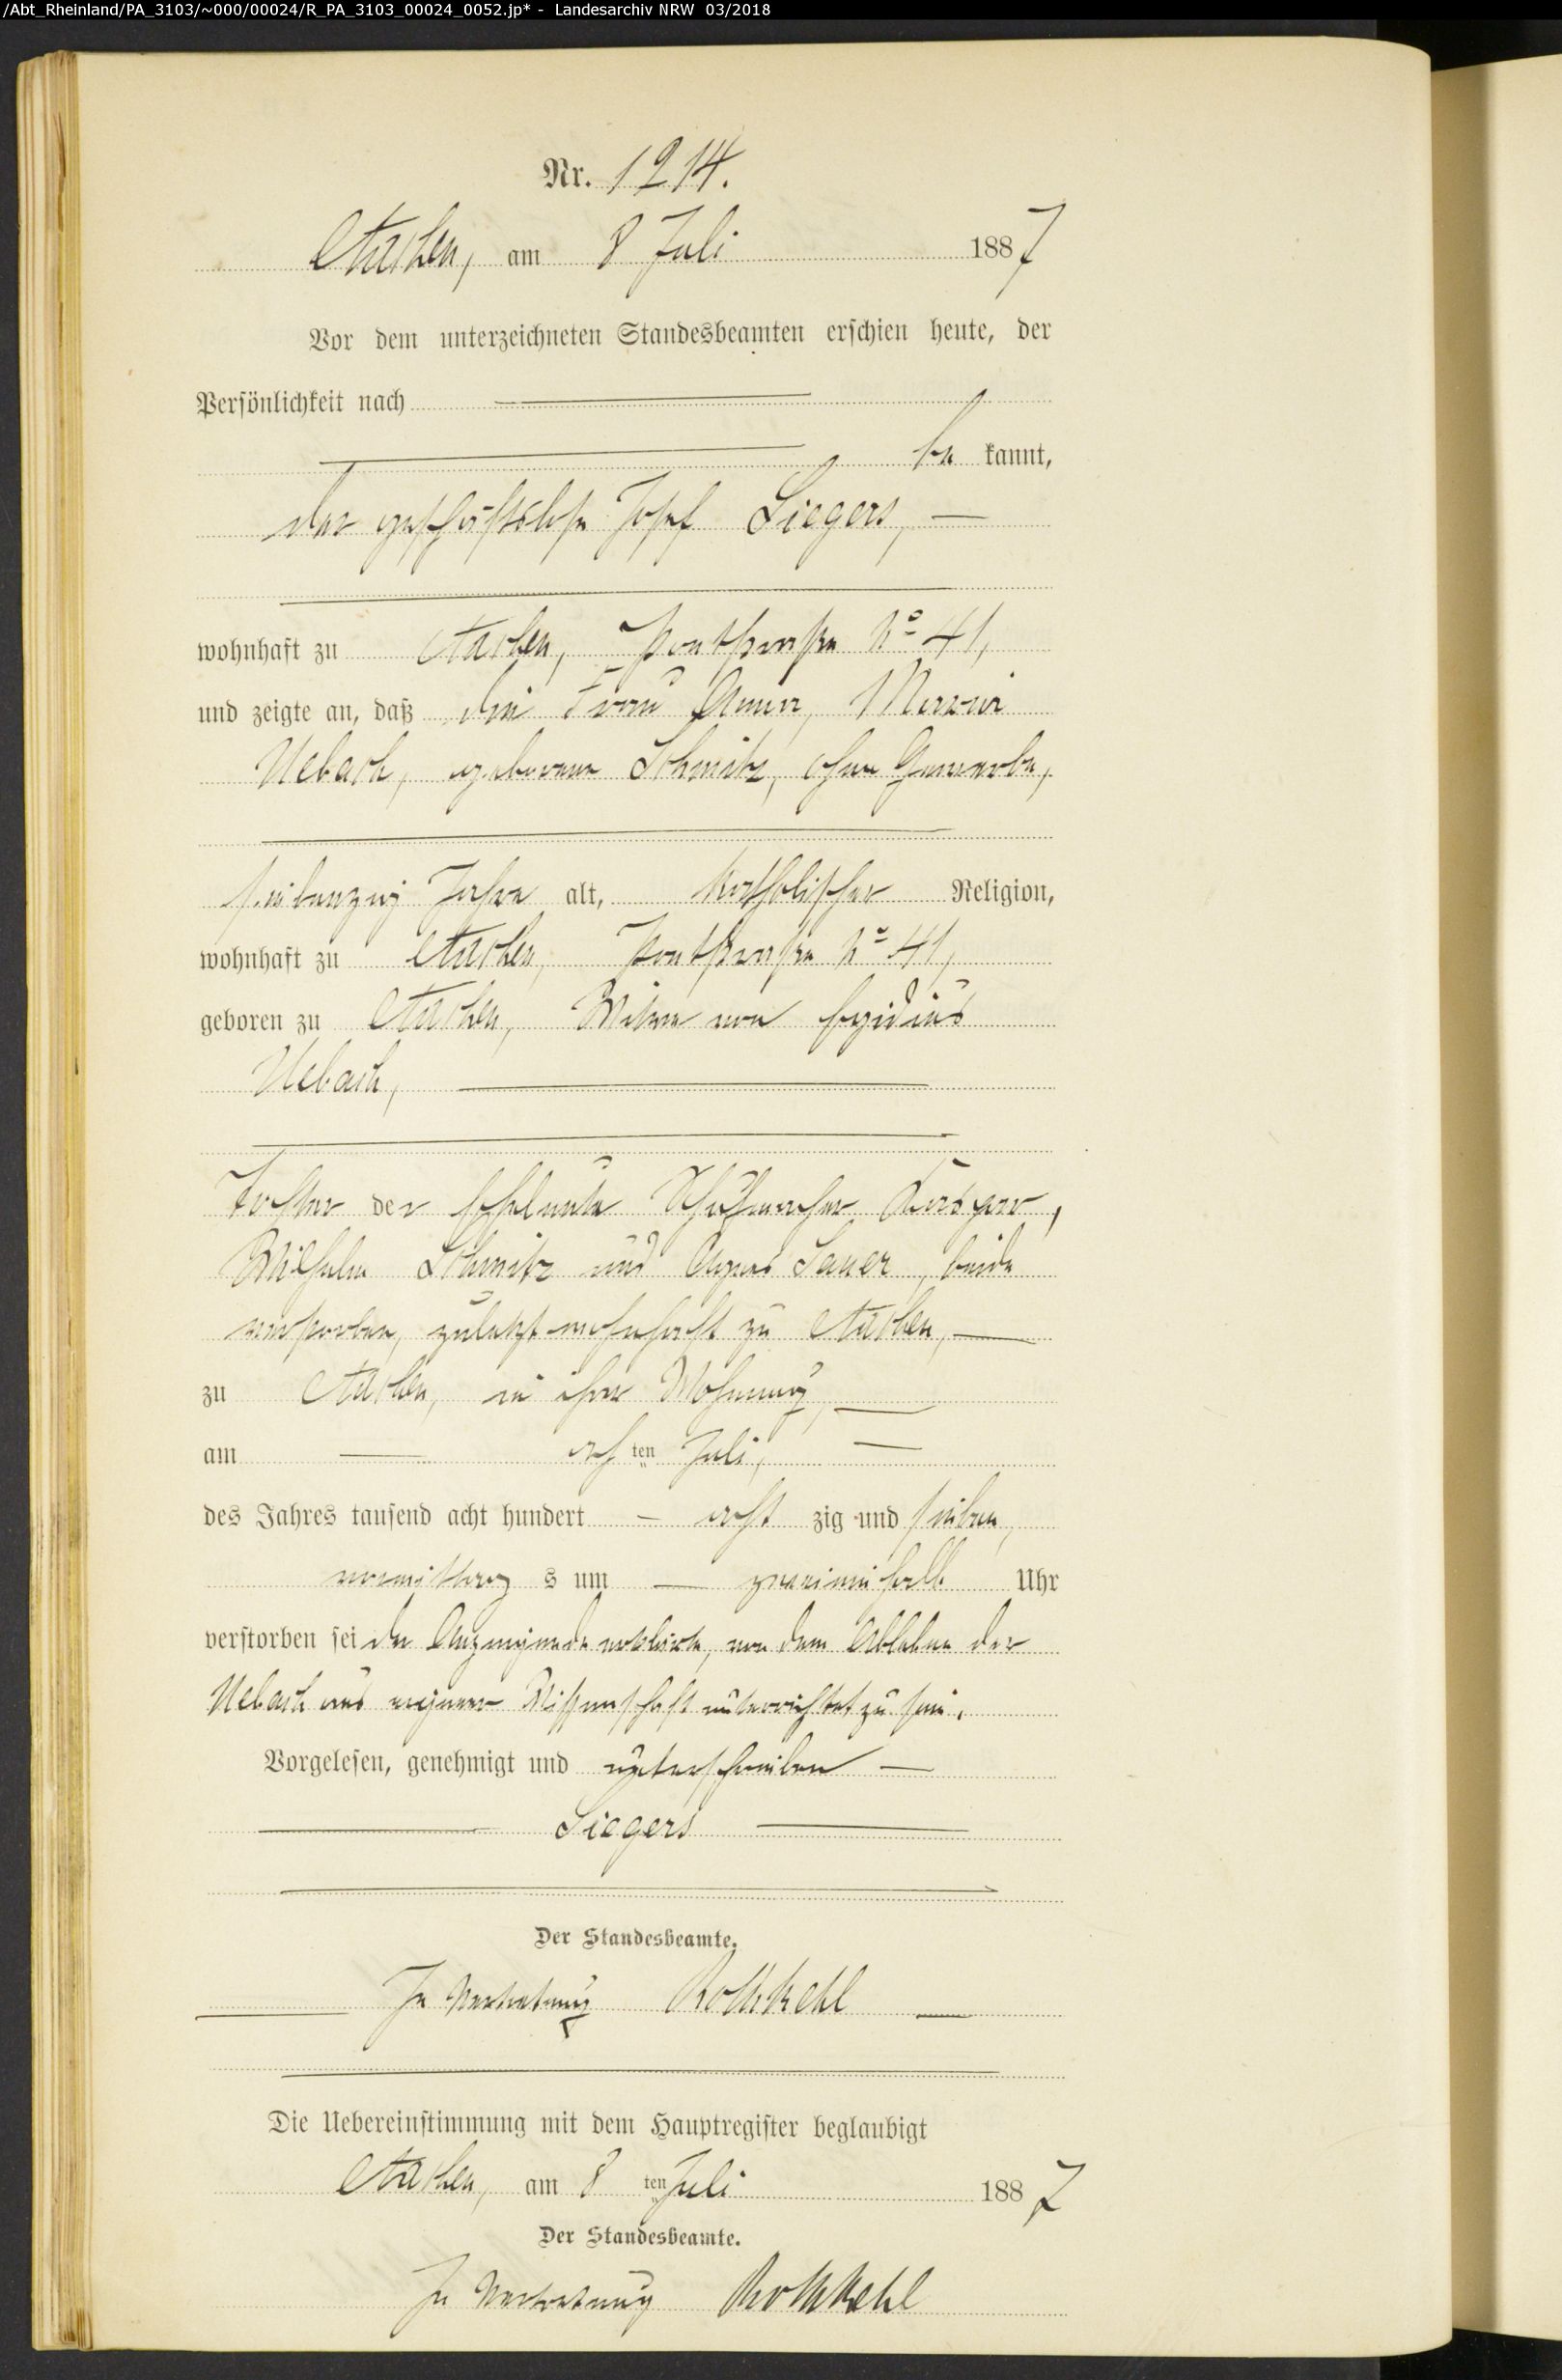 /Abt_Rheinland/PA_3103/~000/00024/R_PA_3103_00024_0052.jp* - Landesarchiv NRW 03/2018
Nr. 1214.
Aachen, am 8 Juli 1887
Vor dem unterzeichneten Standesbeamten erschien heute, der
Persönlichkeit nach
be kannt,
der geschäftslose Josef Siegers,
wohnhaft zu Aachen, Pontstraße No 41,
und zeigte an, daß die Frau Anna, Maria
Uebach, geborene Schmitz, ohne Gewerbe,
siebenzig Jahre alt, katholischer Religion,
wohnhaft zu Aachen, Pontstraße No 41,
geboren zu Aachen, Witwe von Egidius
Uebach,
Tochter der Eheleute Schuhmacher Caspar,
Wilhelm Schmitz und Agnes Sauer, beide
verstorben, zuletzt wohnhaft zu Aachen,
zu Aachen, in ihrer Wohnung,
am achten Juli,
des Jahres tausend acht hundert acht zig und sieben,
vormittag s um zweieinhalb Uhr
verstorben sei der Anzeigende erklärte, von dem Ableben der
Uebach aus eigener Wissenschaft unterrichtet zu sein.
Vorgelesen, genehmigt und unterschrieben
Siegers
Der Standesbeamte.
In Vertretung Rothkehl
Die Uebereinstimmung mit dem Hauptregister beglaubigt
Aachen, am 8 ten Juli 1887
Der Standesbeamte.
In Vertretung Rothkehl